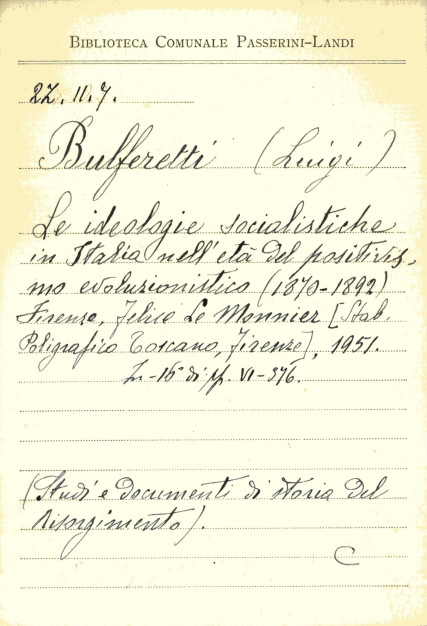 BIBLIOTECA COMUNALE PASSERINI-LANDI
2Z. 11. 7.
Bulferetti (Luigi)
Le ideologie socialistiche
in Italia nell'età del positivis-
mo evoluzionistico (1870-1892)
Firenze, Felice Le Monnier [Stab.
Poligrafico Toscano, Firenze], 1951.
In-16° di pp. VI-376.
(Studi e documenti di storia del
Risorgimento).
C